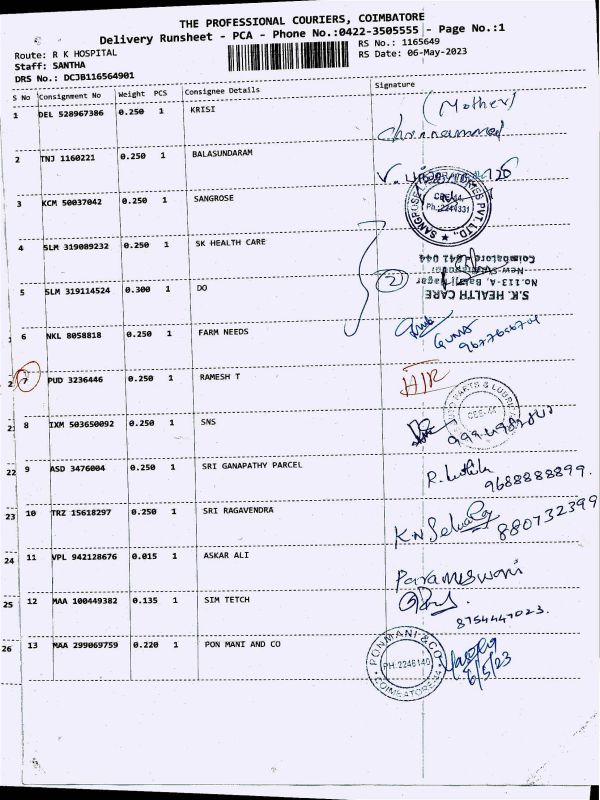 THE PROFESSIONAL COURIERS, COIMBATORE
Delivery Runsheet - PCA - Phone No.:0422-3505555 - Page No.:1
Route: R K HOSPITAL
RS No.: 1165649
Staff: SANTHA
RS Date: 06-May-2023
DRS No.: DCJB116564901
S No Consignment No Weight PCS Consignee Details Signature
1 DEL 528967386 0.250 1 KRISI (Mother)
2 TNJ 1160221 0.250 1 BALASUNDARAM
3 KCM 50037042 0.250 1 SANGROSE
SANGROSE LABORATORIES PVT. LTD.,
CBE-44.
Ph.:2244331
4 SLM 319089232 0.250 1 SK HEALTH CARE
5 SLM 319114524 0.300 1 DO 2
S.K. HEALTH CARE
No.113-A, Balaji Nagar
Coimbatore - 641 044
6 NKL 8058818 0.250 1 FARM NEEDS
7 PUD 3236446 0.250 1 RAMESH T H/R
21 8 IXM 503650092 0.250 1 SNS
CBE-44
22 9 ASD 3476004 0.250 1 SRI GANAPATHY PARCEL
9688888899.
23 10 TRZ 15618297 0.250 1 SRI RAGAVENDRA
880732399
24 11 VPL 942128676 0.015 1 ASKAR ALI
Parameswari
25 12 MAA 100449382 0.135 1 SIM TETCH
8754447023.
26 13 MAA 299069759 0.220 1 PON MANI AND CO
PONMANI & CO.
PH:2246140
COIMBATORE-44
6/5/23